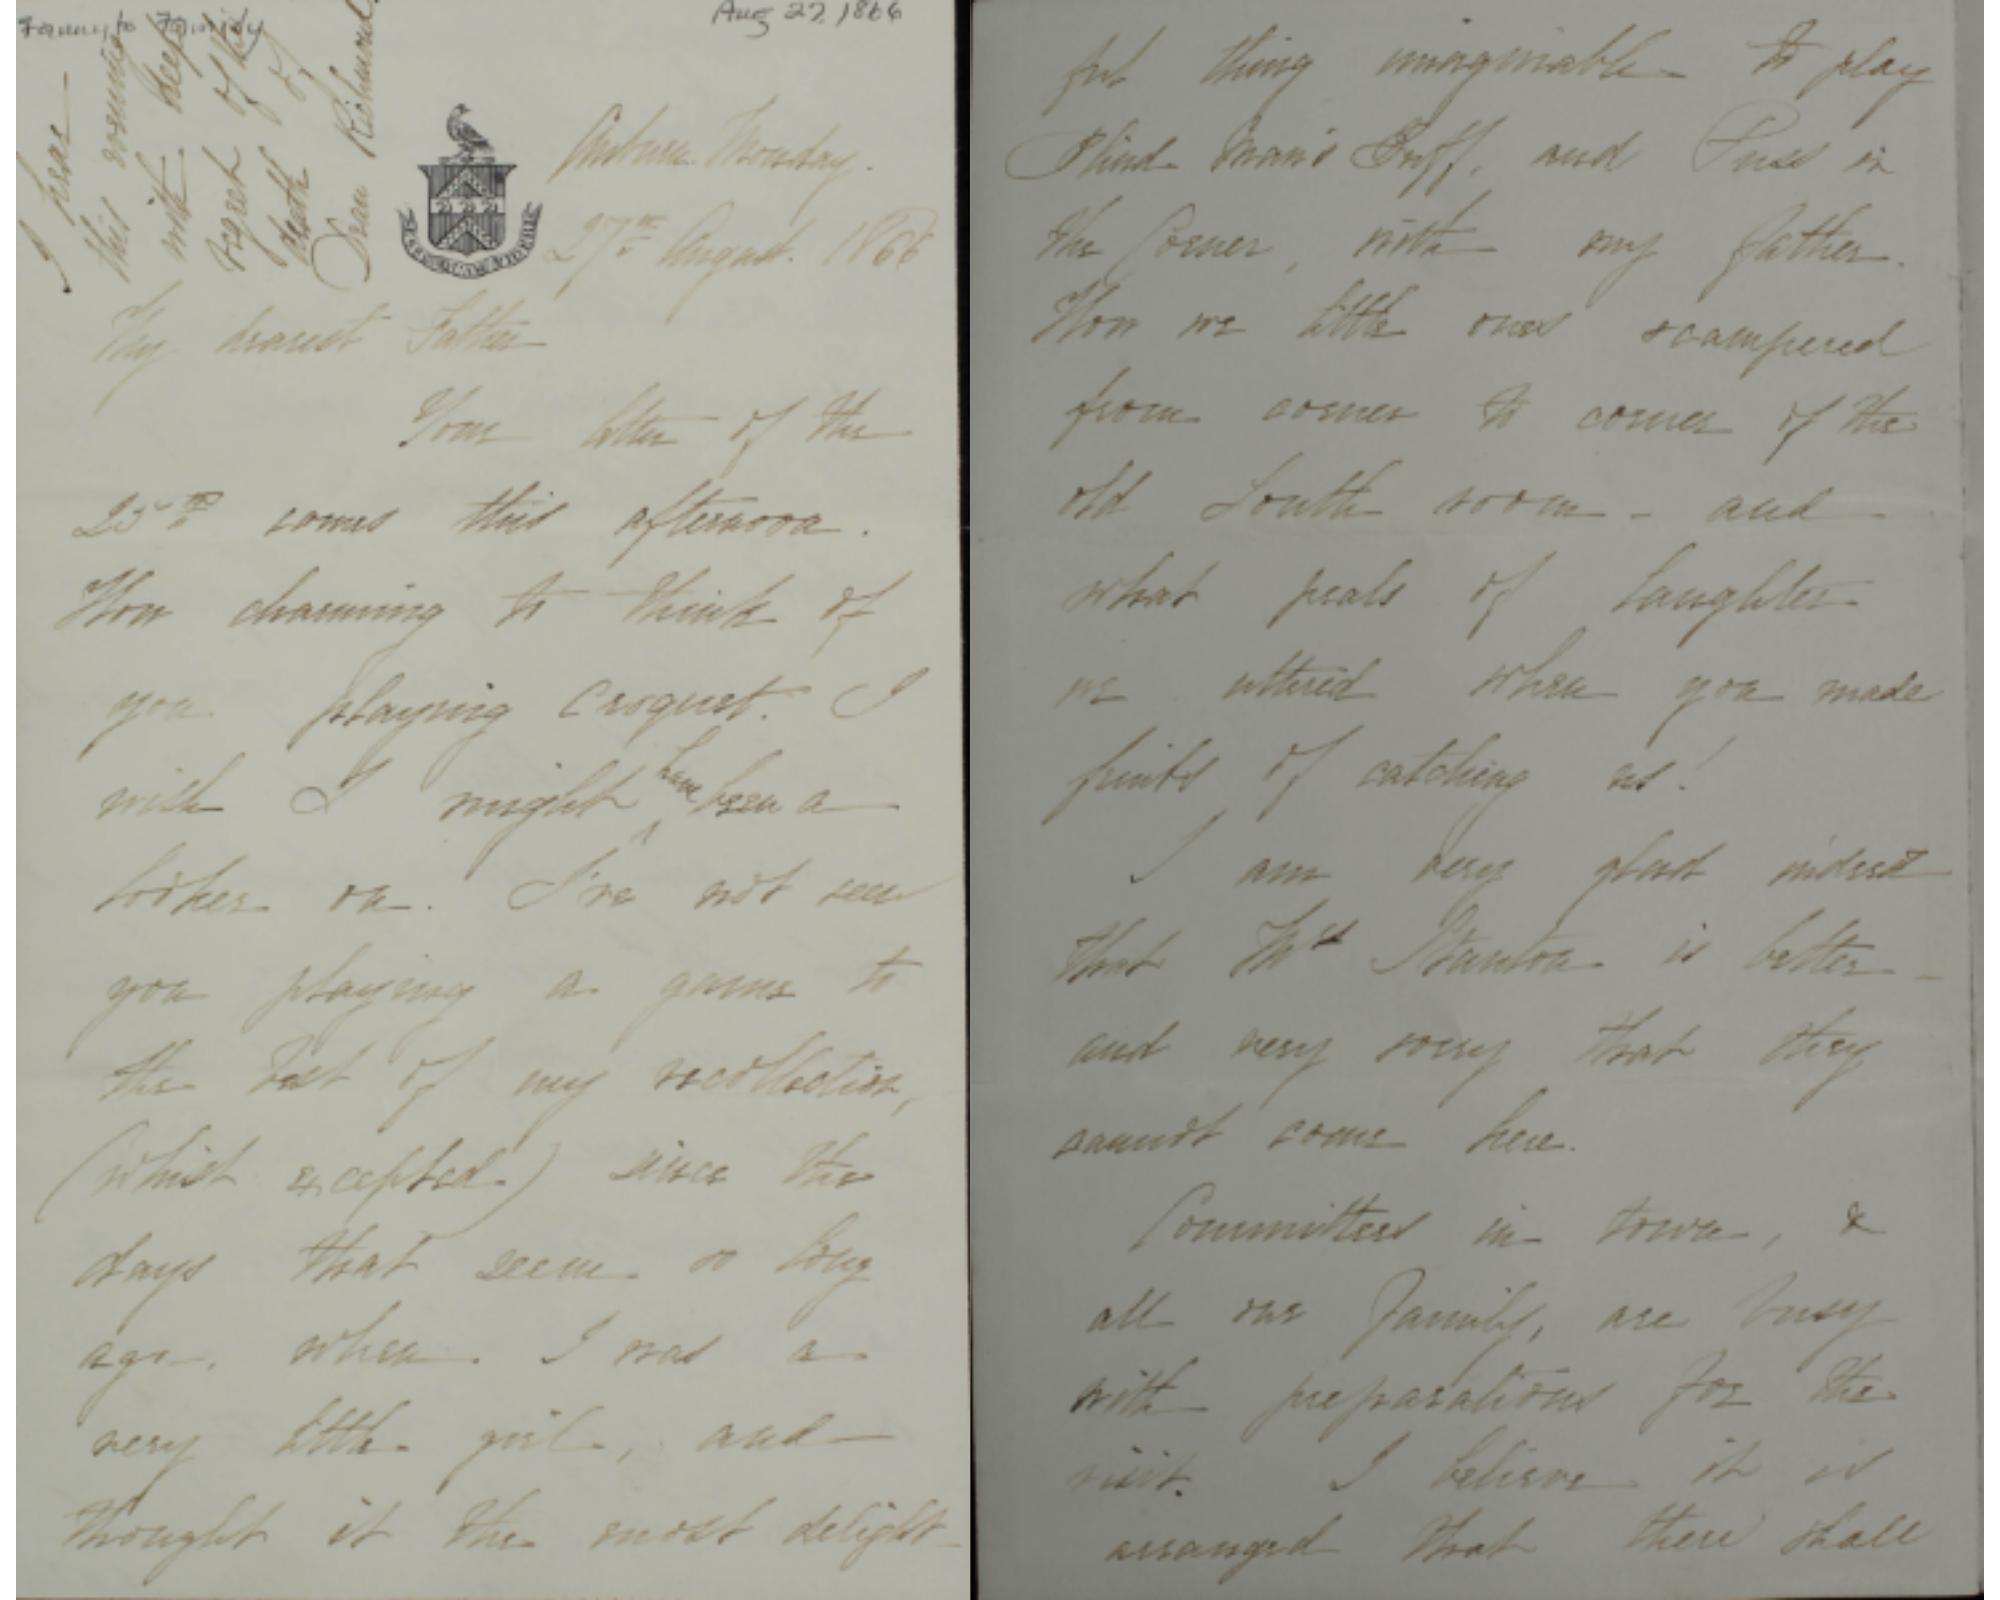 Fanny to Family
Aug 27, 1866
I hear
this evening
with deep
regret of the
death of
Dean Richmond.
Auburn Monday.
27th August. 1866
My dearest Father
Your letter of the
25th comes this afternoon.
How charming to think of
you playing Croquet. I
wish I might have been a
looker on. I've not seen
you playing a game to
the best of my recollection,
(whist excepted) since the
days that seem so long
ago, when I was a
very little girl, and
thought it the most delight-
ful thing imaginable to play
Blind man's Buff, and Puss in
the Corner, with my father.
How we little ones scampered
from corner to corner of the
old South room - and
what peals of laughter
we uttered when you made
feints of catching us!
I am very glad indeed
that Mrs Stanton is better -
and very sorry that they
cannot come here.
Committees in town, &
all our family, are busy
with preparations for the
visit. I believe it is
arranged that there shall